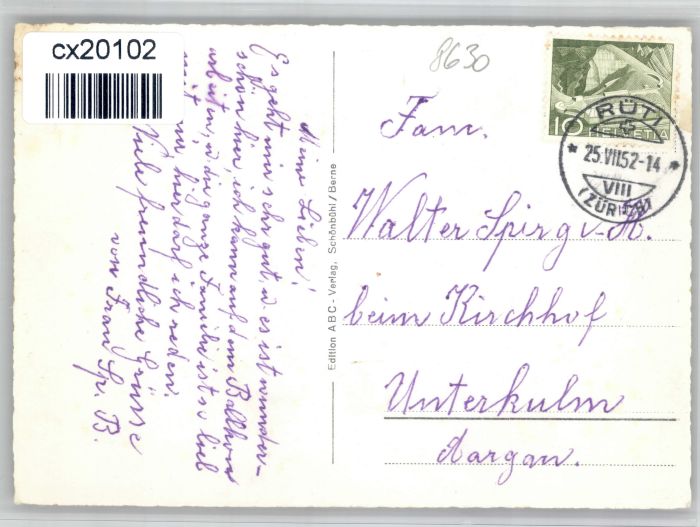 cx20102
8630
10
HELVETIA
RÜTI
25.VII.52-14
VIII
(ZÜRICH)
Meine Lieben!
Es geht mir sehr gut, u. es ist wunder-
schön hier, ich kann auf dem
arbeiten, u. die ganze Familie ist so lieb
mit mir, hier darf ich reden.
Viele freundliche Grüsse
von Frau Sp. B.
Edition ABC - Verlag, Schönbühl / Berne
Fam.
Walter Spirg v. A.
beim Kirchhof
Unterkulm
Aargau.